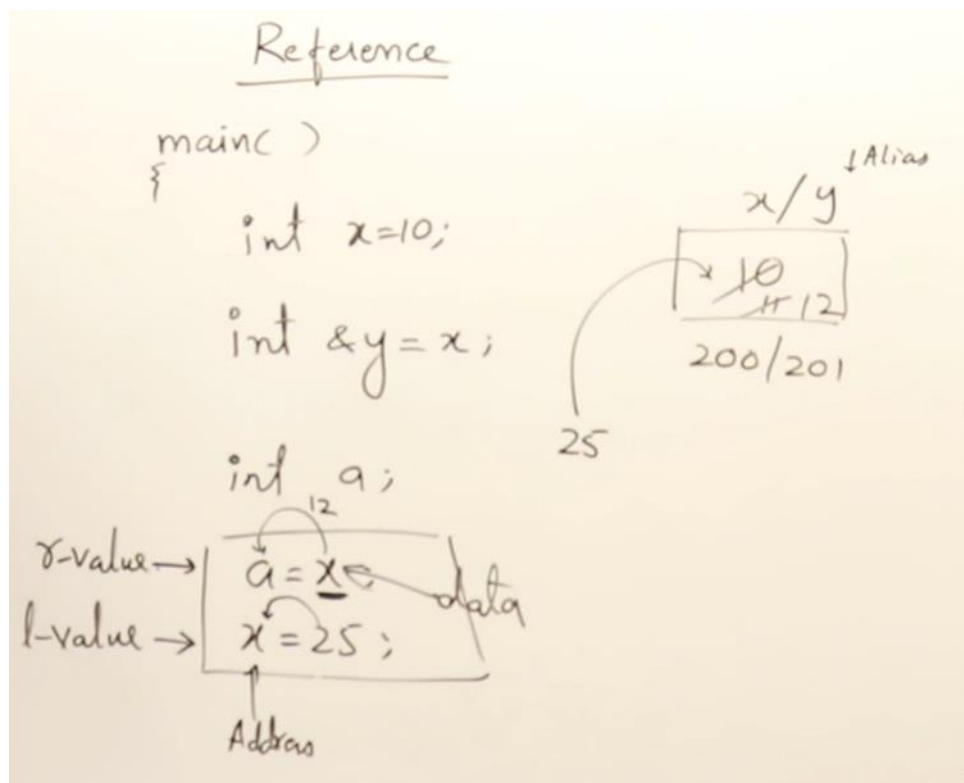 Reference
main( )
{
int x=10;
int &y=x;
int a;
12
r-value→ a = x; data
l-value → x = 25;
Address
↓Alias
x/y
10
11 12
200/201
25